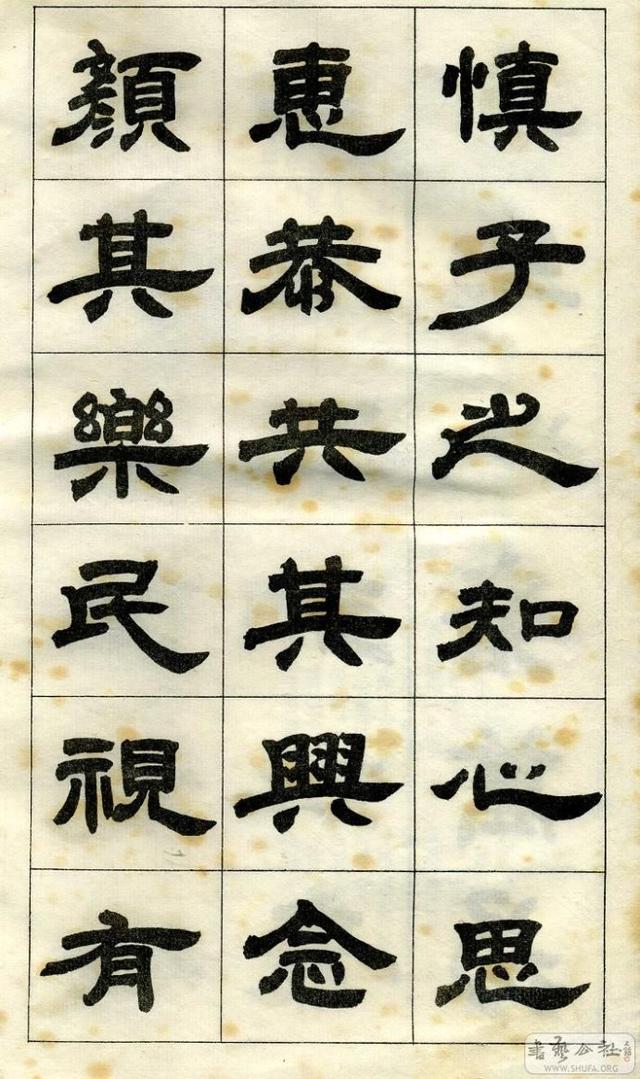 慎子之知心思
惠恭共其興念
顏其樂民視有
書藝公社
WWW.SHUFA.ORG